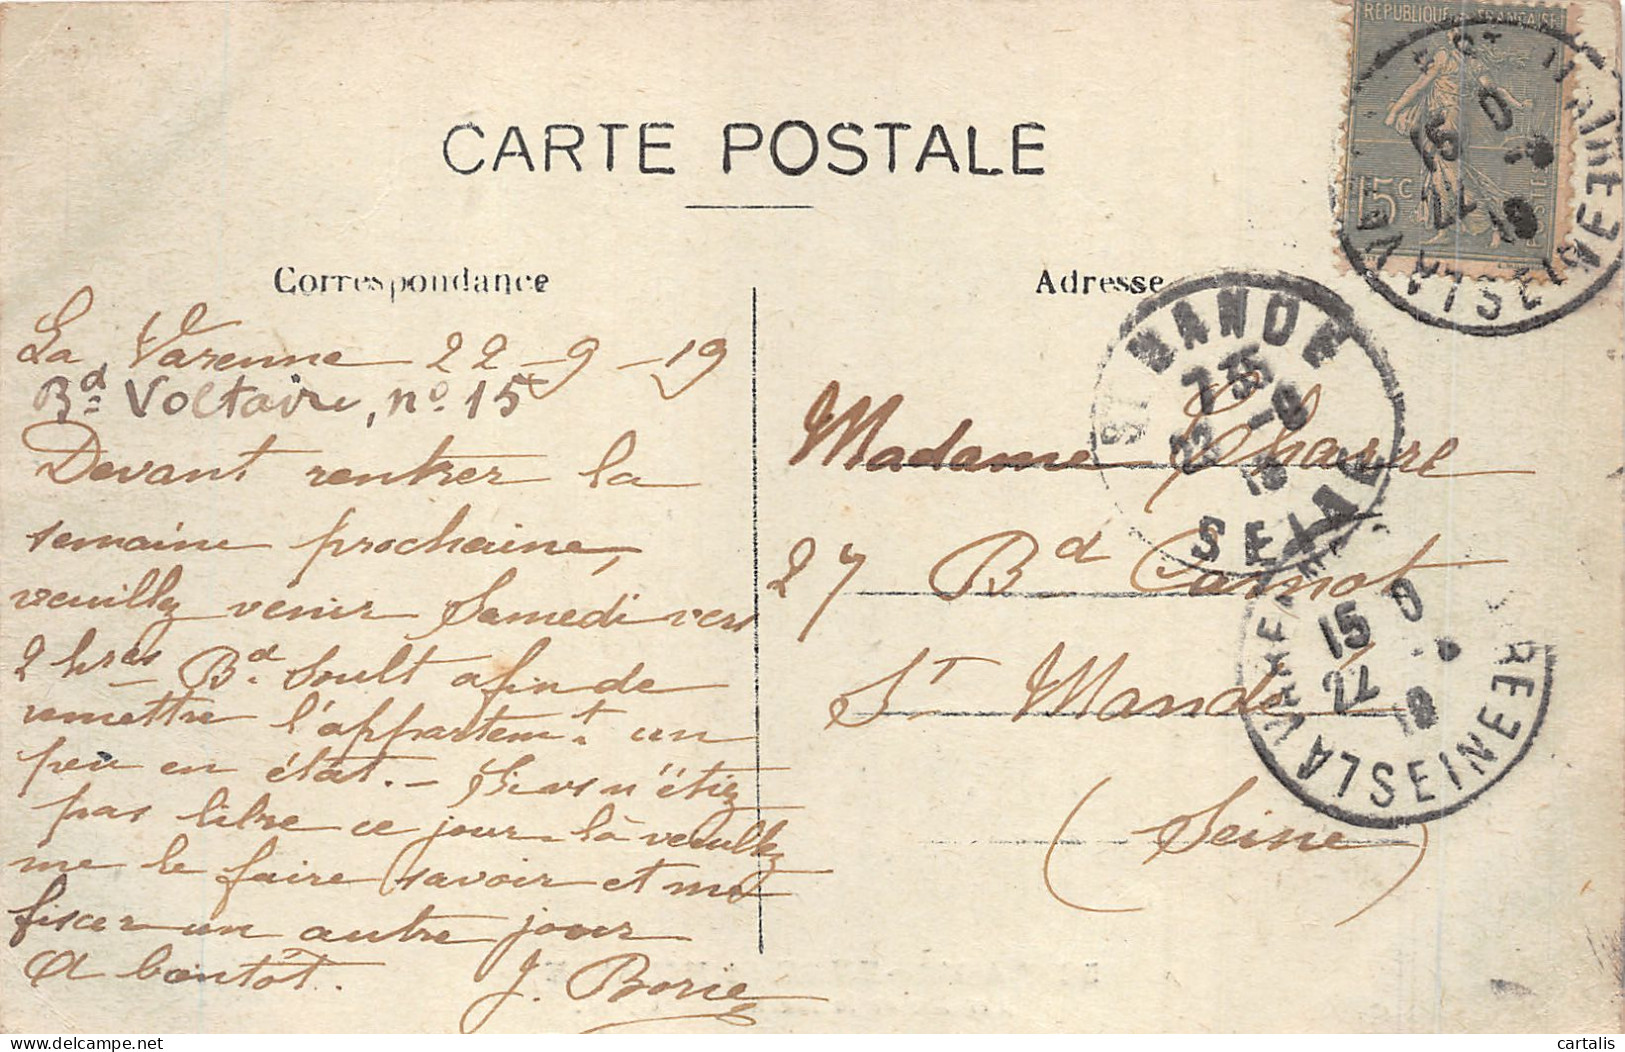 CARTE POSTALE
Correspondance
La Varenne 22-9-19
Bd Voltaire, no 15
Devant rentrer la
semaine prochaine,
veuillez venir Samedi vers
2 hres Bd. Soult afin de
remettre l'appartemt un
peu en état. - Si vs n'étiez
pas libre ce jour-là veuillez
me le faire savoir et me
fixer un autre jour
A bientôt. J. Borie
RÉPUBLIQUE FRANÇAISE
15c
POSTES
LA VARENNE ST HILAIRE
15
22
19
SEINE
Adresse
ST MANDÉ
7 35
22 -9
19
SEINE
Madame Charre
27 Bd Carnot
St Mandé
(Seine)
LA VARENNE
15
22
19
SEINE
delcampe.net
cartalis